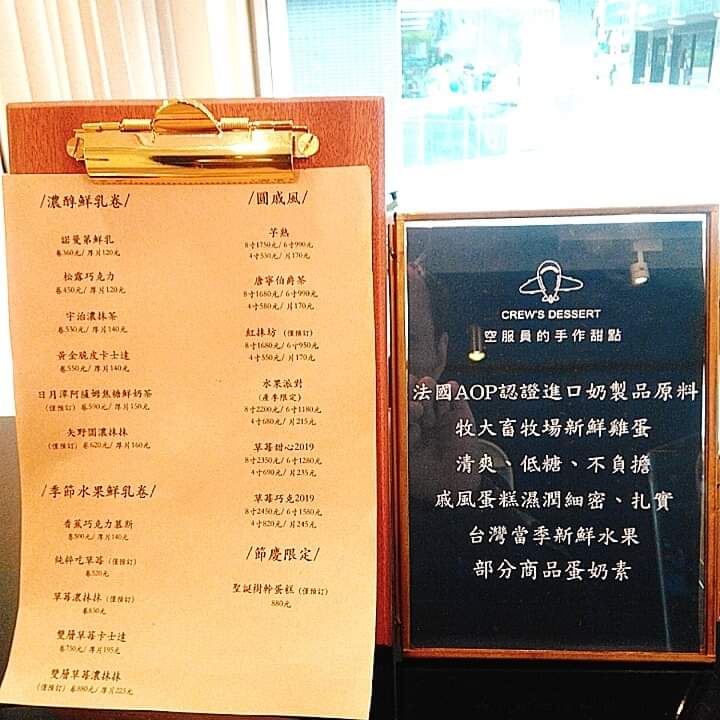 /濃醇鮮乳卷/
諾曼第鮮乳
卷360元/ 厚片120元
松露巧克力
卷450元/ 厚片120元
宇治濃抹茶
卷530元/ 厚片140元
黃金脆皮卡士達
卷550元/ 厚片140元
日月潭阿薩姆焦糖鮮奶茶
(僅預訂) 卷590元/ 厚片150元
矢野園濃抹抹
(僅預訂) 卷620元/ 厚片160元
/季節水果鮮乳卷/
香蕉巧克力慕斯
卷500元/ 厚片140元
純粹吃草莓 (僅預訂)
卷520元
草莓濃抹抹 (僅預訂)
卷650元
雙層草莓卡士達
卷750元/ 厚片195元
雙層草莓濃抹抹
(僅預訂) 卷880元/ 厚片225元
/圓戚風/
芋熱
8寸1750元/ 6寸990元
4寸530元/ 片170元
唐寧伯爵茶
8寸1680元/ 6寸990元
4寸580元/ 片170元
紅抹坊 (僅預訂)
8寸1680元/ 6寸950元
4寸550元/ 片170元
水果派對
(產季限定)
8寸2200元/ 6寸1180元
4寸680元/ 片215元
草莓甜心2019
8寸2350元/ 6寸1280元
4寸690元/ 片235元
草莓巧克2019
8寸2450元/ 6寸1580元
4寸820元/ 片245元
/節慶限定/
聖誕樹幹蛋糕 (僅預訂)
880元
CREW'S DESSERT
空服員的手作甜點
法國AOP認證進口奶製品原料
牧大畜牧場新鮮雞蛋
清爽、低糖、不負擔
戚風蛋糕濕潤細密、扎實
台灣當季新鮮水果
部分商品蛋奶素